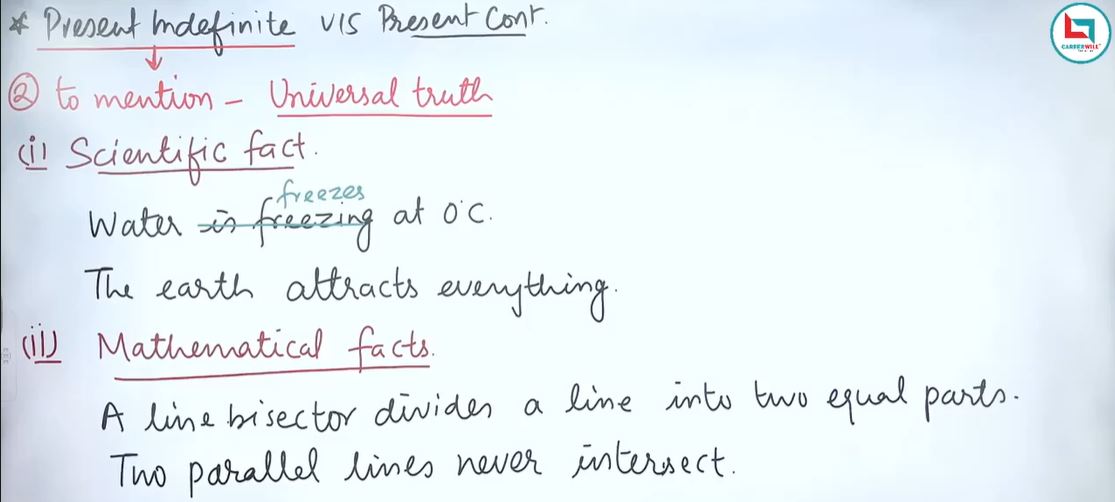 * Present Indefinite V/S Present Cont.
CAREERWILL
② to mention - Universal truth
(i) Scientific fact.
freezes
Water is freezing at 0°C.
The earth attracts everything.
(ii) Mathematical facts.
A line bisector divides a line into two equal parts.
Two parallel lines never intersect.